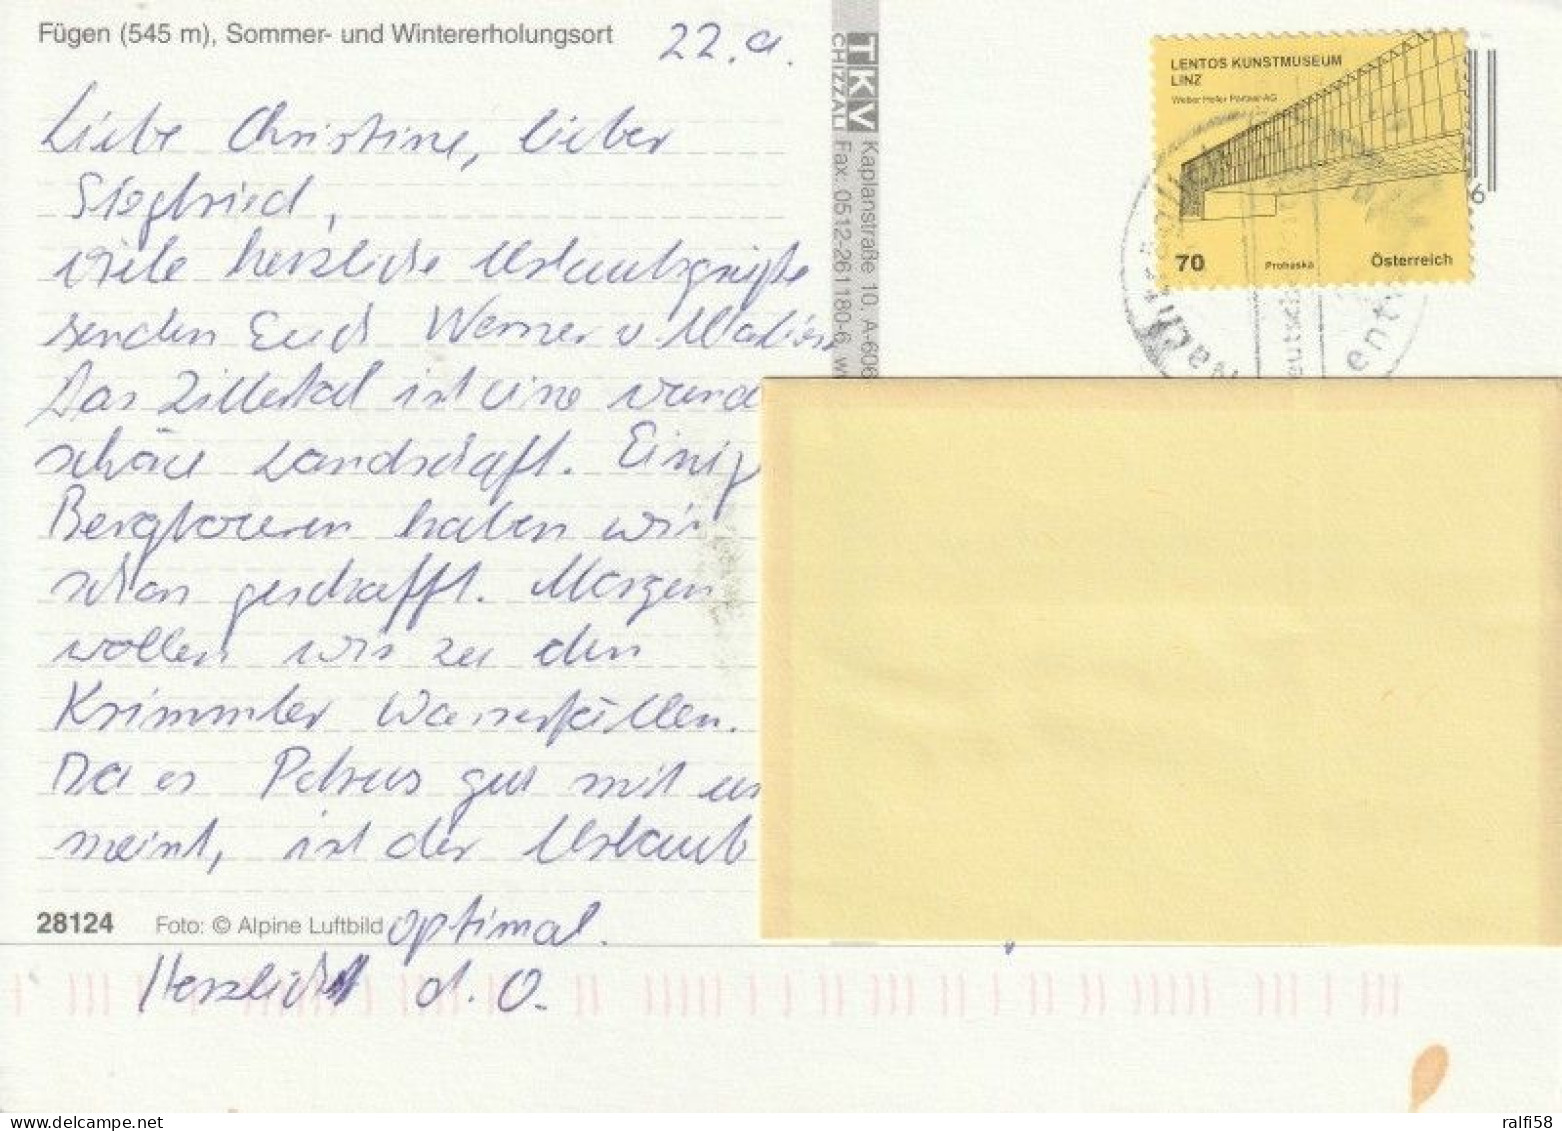 Fügen (545 m), Sommer- und Wintererholungsort
22. a.
Liebe Christine, lieber
Siegfried,
viele herzliche Urlaubsgrüße
senden Euch Werner u.
Das Zillertal ist eine wund
schöne Landschaft. Einig
Bergtouren haben wir
schon geschafft. Morgen
wollen wir zu den
Krimmler Wasserfällen.
Da es Petrus gut mit un
meint, ist der Urlaub
optimal.
Herzlichst d. O.
28124 Foto: © Alpine Luftbild
TKV
CHIZZALI
Kaplanstraße 10, A-606
Fax: 0512-261180-6, w
LENTOS KUNSTMUSEUM
LINZ
Weber Hofer Partner AG
70 Prohaska Österreich
6
ralfi58